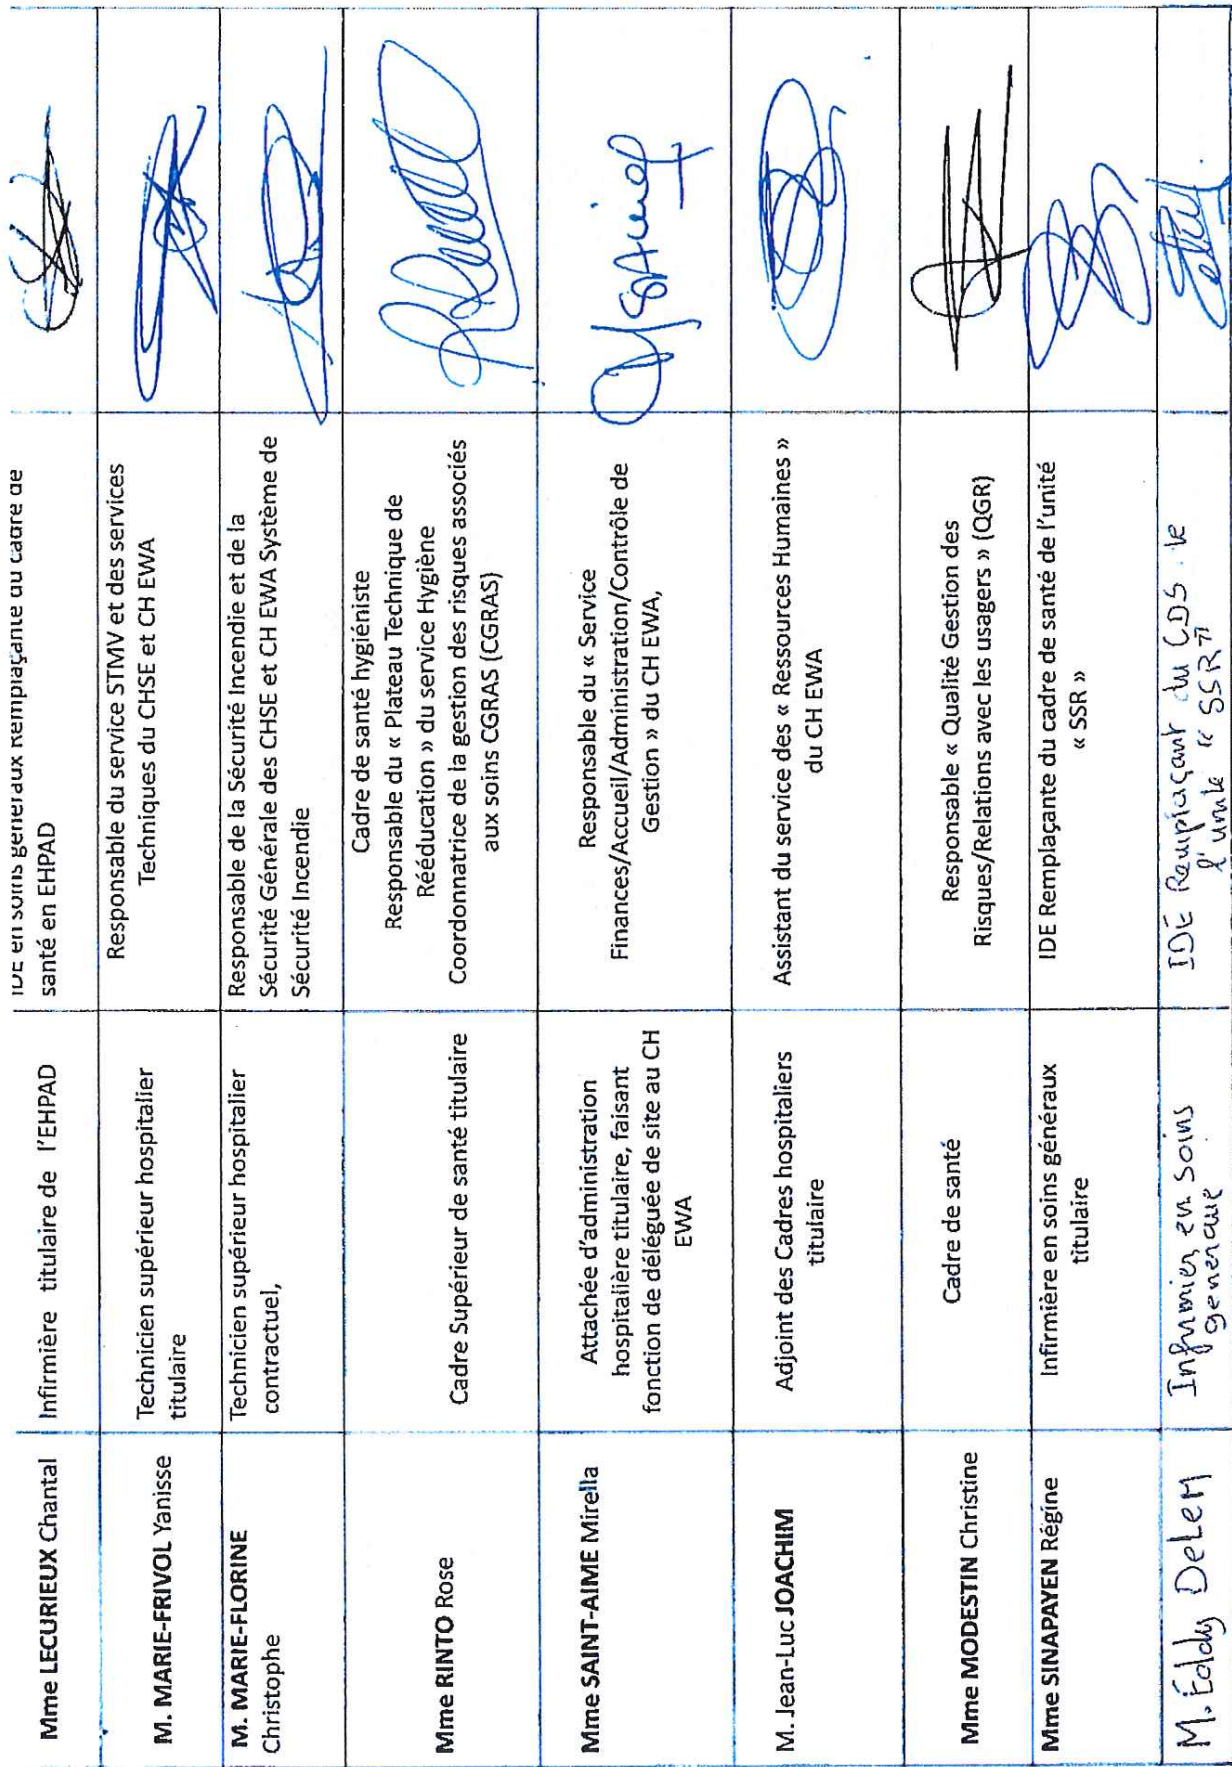 Mme LECURIEUX Chantal
Infirmière titulaire de l'EHPAD
IDE en soins généraux Remplaçante du cadre de
santé en EHPAD
M. MARIE-FRIVOL Yanisse
Technicien supérieur hospitalier
titulaire
Responsable du service STMV et des services
Techniques du CHSE et CH EWA
M. MARIE-FLORINE
Christophe
Technicien supérieur hospitalier
contractuel,
Responsable de la Sécurité Incendie et de la
Sécurité Générale des CHSE et CH EWA Système de
Sécurité Incendie
Mme RINTO Rose
Cadre Supérieur de santé titulaire
Cadre de santé hygiéniste
Responsable du « Plateau Technique de
Rééducation » du service Hygiène
Coordonnatrice de la gestion des risques associés
aux soins CGRAS (CGRAS)
Mme SAINT-AIME Mirella
Attachée d'administration
hospitalière titulaire, faisant
fonction de déléguée de site au CH
EWA
Responsable du « Service
Finances/Accueil/Administration/Contrôle de
Gestion » du CH EWA,
M. Jean-Luc JOACHIM
Adjoint des Cadres hospitaliers
titulaire
Assistant du service des « Ressources Humaines »
du CH EWA
Mme MODESTIN Christine
Cadre de santé
Responsable « Qualité Gestion des
Risques/Relations avec les usagers » (QGR)
Mme SINAPAYEN Régine
Infirmière en soins généraux
titulaire
IDE Remplaçante du cadre de santé de l'unité
« SSR »
M. Eddy Delem
Infirmier en soins
IDE Remplaçant du CDS
« SSR »